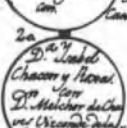 con
Con
2a
D.ª Ysabel
Chacon y
con
D.n Melchor de Cha
ves Vizconde de la